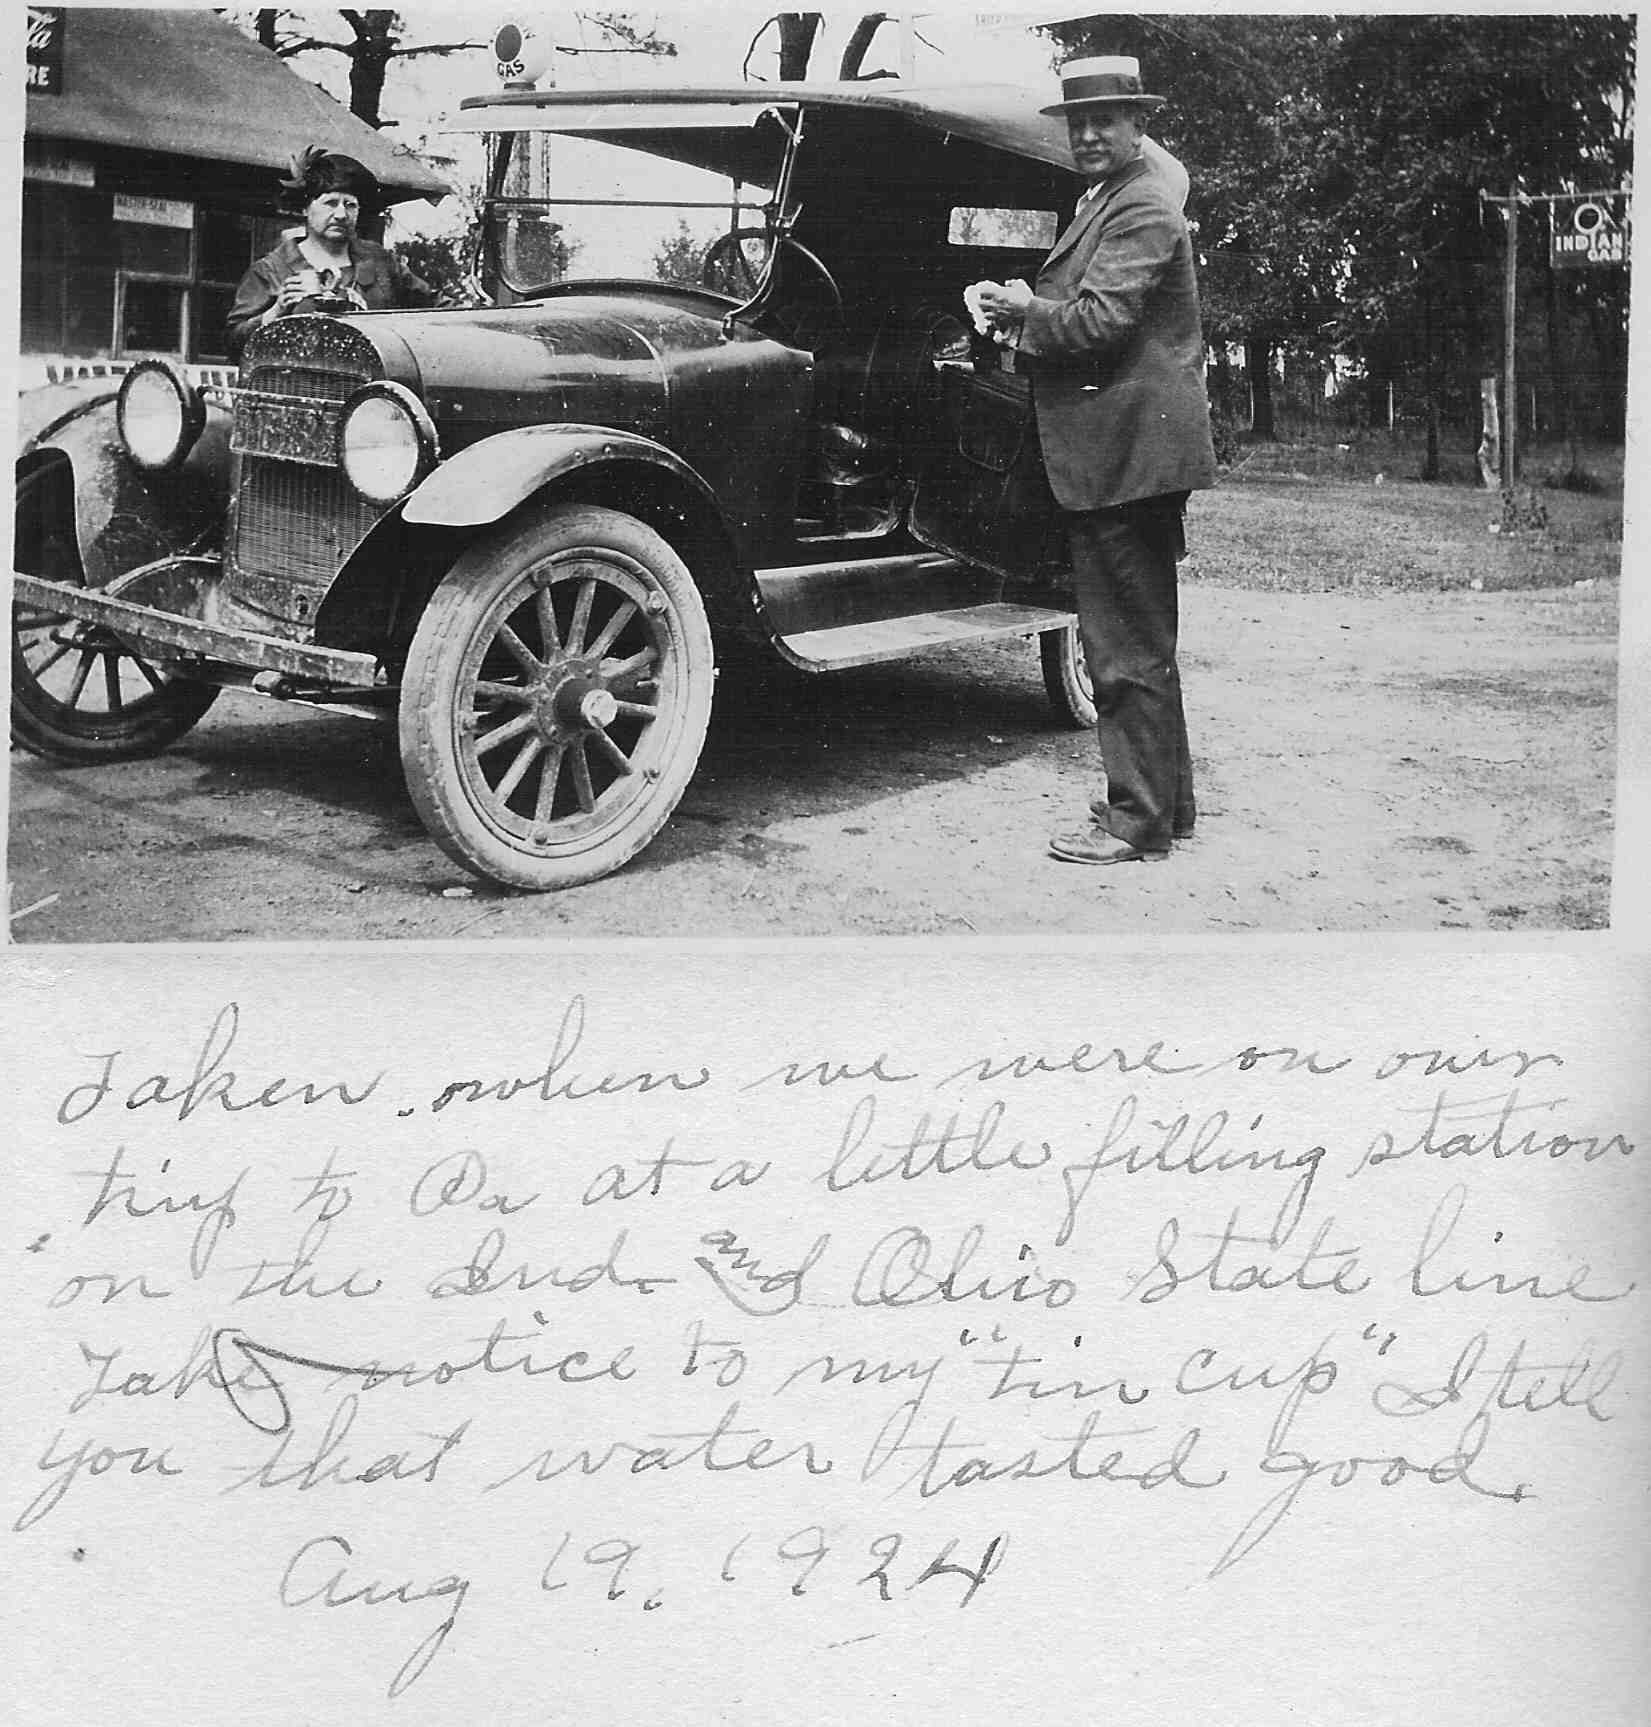 ta
RE
GAS
MASTER-SEAL
INDIAN
GAS
Taken when we were on our
trip to Pa at a little filling station
on the Ind. and Ohio State line
Take notice to my "tin cup" I tell
you that water tasted good.
Aug 19, 1924